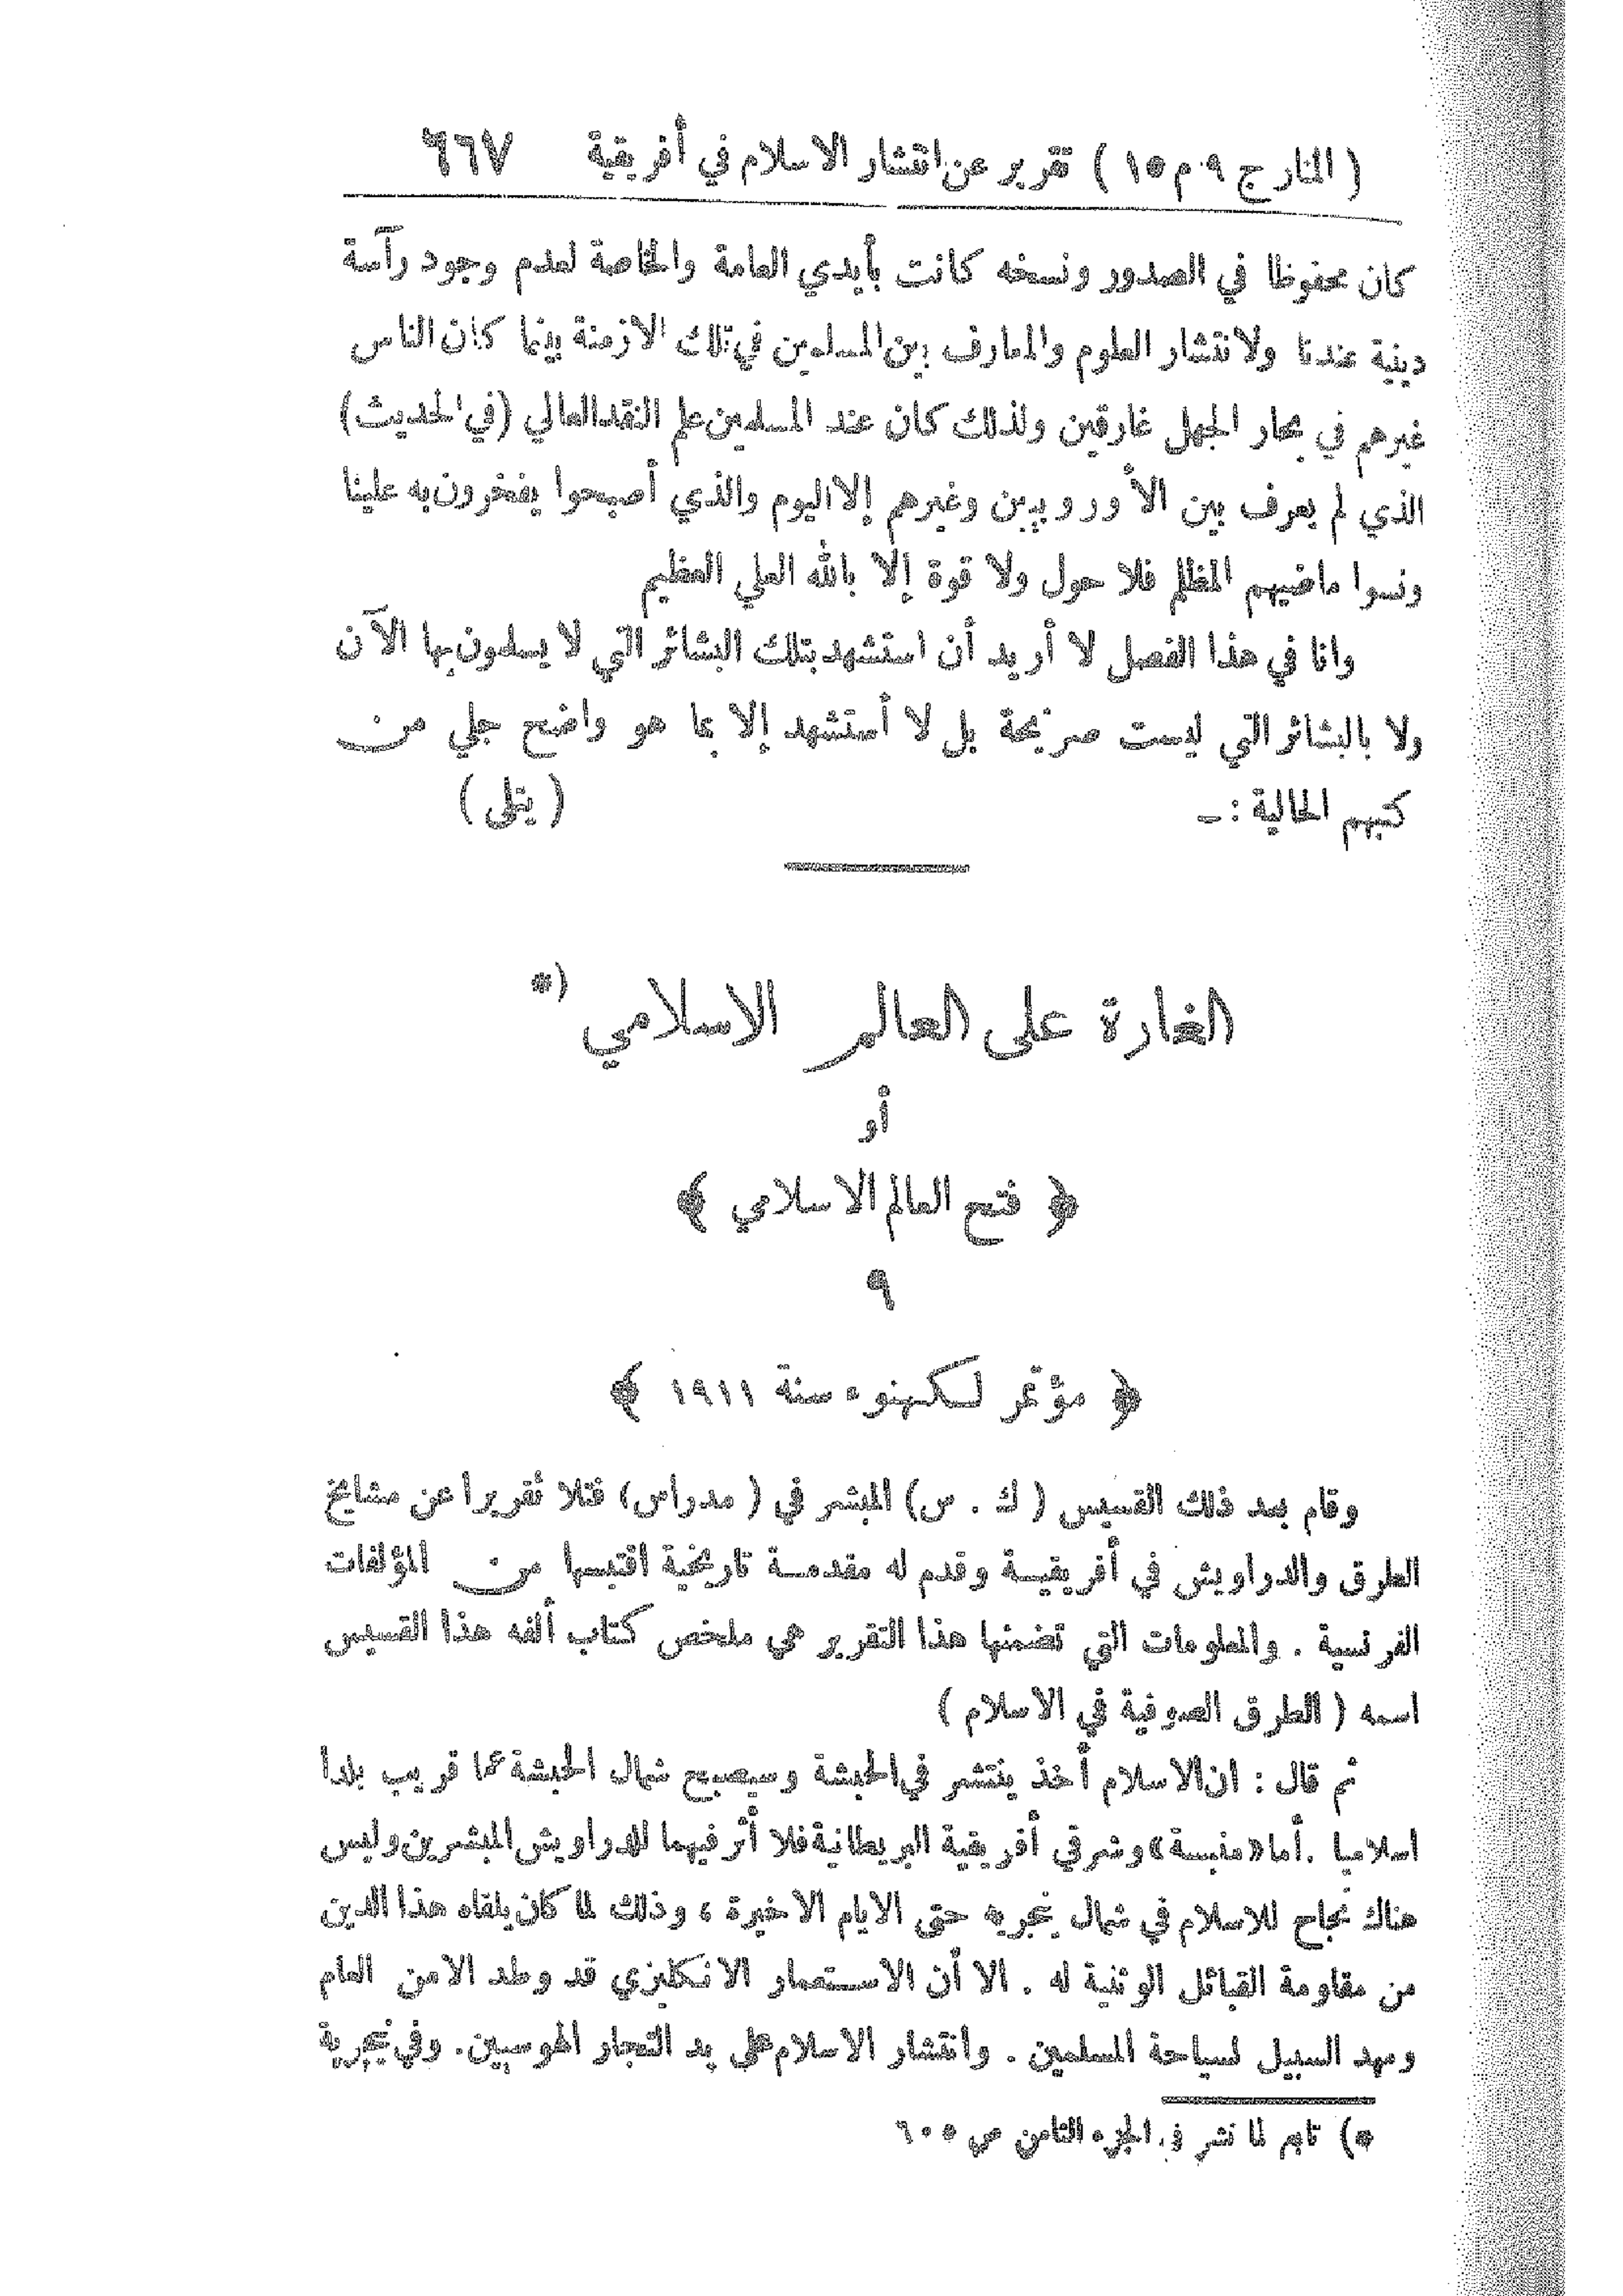 ( المنار ج ٩ م ١٥ ) تقرير عن انتشار الاسلام في أفريقية ٦٦٧
كان محفوظا في الصدور ونسخه كانت بأيدي العامة والخاصة لعدم وجود رآسة
دينية عندنا ولانتشار العلوم والمعارف بين المسلمين في تلك الازمنة بينما كان الناس
غيرهم في بحار الجهل غارقين ولذلك كان عند المسلمين علم النقد العالي (في الحديث)
الذي لم يعرف بين الأوروبيين وغيرهم إلا اليوم والذي أصبحوا يفخرون به علينا
ونسوا ماضيهم المظلم فلا حول ولا قوة إلا بالله العلي العظيم
وانا في هذا الفصل لا أريد أن استشهد بتلك البشائر التي لا يسلمون بها الآن
ولا بالبشائر التي ليست صريحة بل لا أستشهد إلا بما هو واضح جلي من
كتبهم الحالية : ـ ( يتلى )
الغارة على العالم الاسلامي (*
أو
﴿ فتح العالم الاسلامي ﴾
٩
﴿ مؤتمر لكهنوء سنة ١٩١١ ﴾
وقام بعد ذلك القسيس ( ك . س) المبشر في ( مدراس) فتلا تقريرا عن مشايخ
الطرق والدراويش في أفريقية وقدم له مقدمة تاريخية اقتبسها من المؤلفات
الفرنسية . والمعلومات التي تضمنها هذا التقرير هي ملخص كتاب ألفه هذا القسيس
اسمه ( الطرق الصوفية في الاسلام )
ثم قال : ان الاسلام أخذ ينتشر في الحبشة وسيصبح شمال الحبشة عما قريب بلدا
اسلاميا . أما «منبسة» وشرقي أفريقية البريطانية فلا أثر فيهما للدراويش المبشرين وليس
هناك نجاح للاسلام في شمال نيجرية حتى الايام الاخيرة ، وذلك لما كان يلقاه هذا الدين
من مقاومة القبائل الوثنية له . الا أن الاستعمار الانكليزي قد وطد الامن العام
ومهد السبيل لسياحة المسلمين . وانتشار الاسلام على يد التجار الهوسيين . وفي نيجرية
*) تابع لما نشر في الجزء الثامن ص ٦٠٥